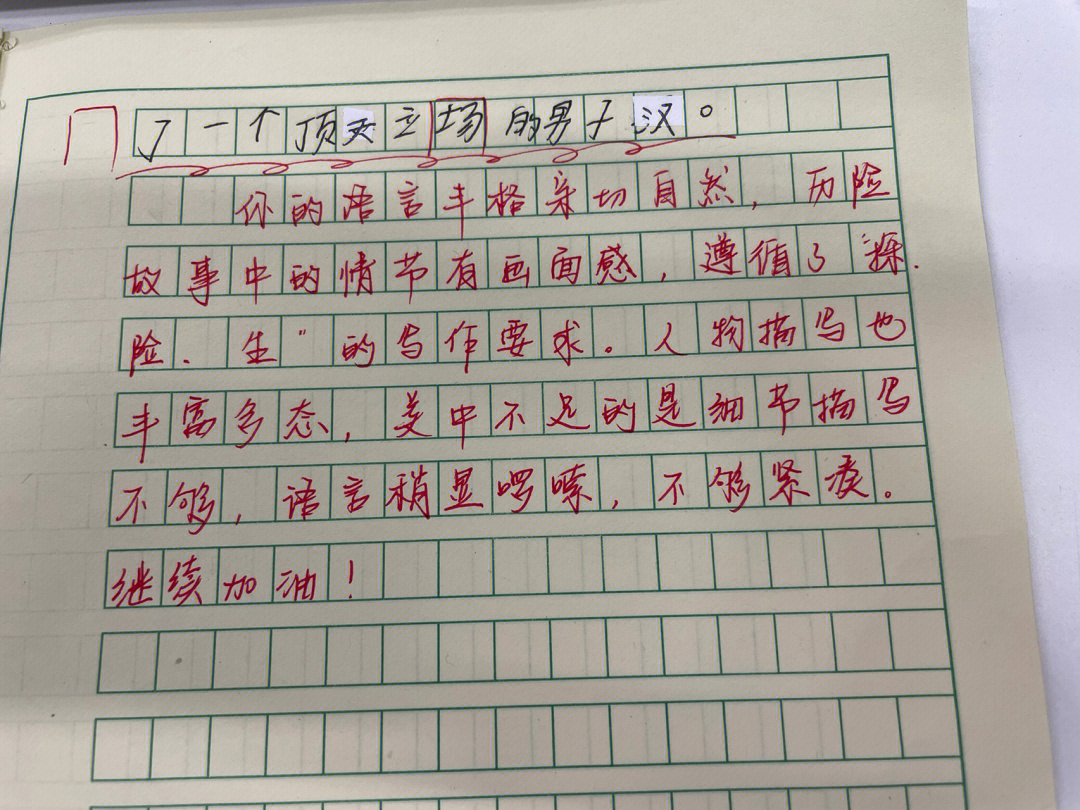 了一个顶天立场的男子汉。
你的语言丰格亲切自然，历险
故事中的情节有画面感，遵循了“探.
险.生”的写作要求。人物描写也
丰富多态，美中不足的是细节描写
不够，语言稍显啰嗦，不够紧凑。
继续加油！